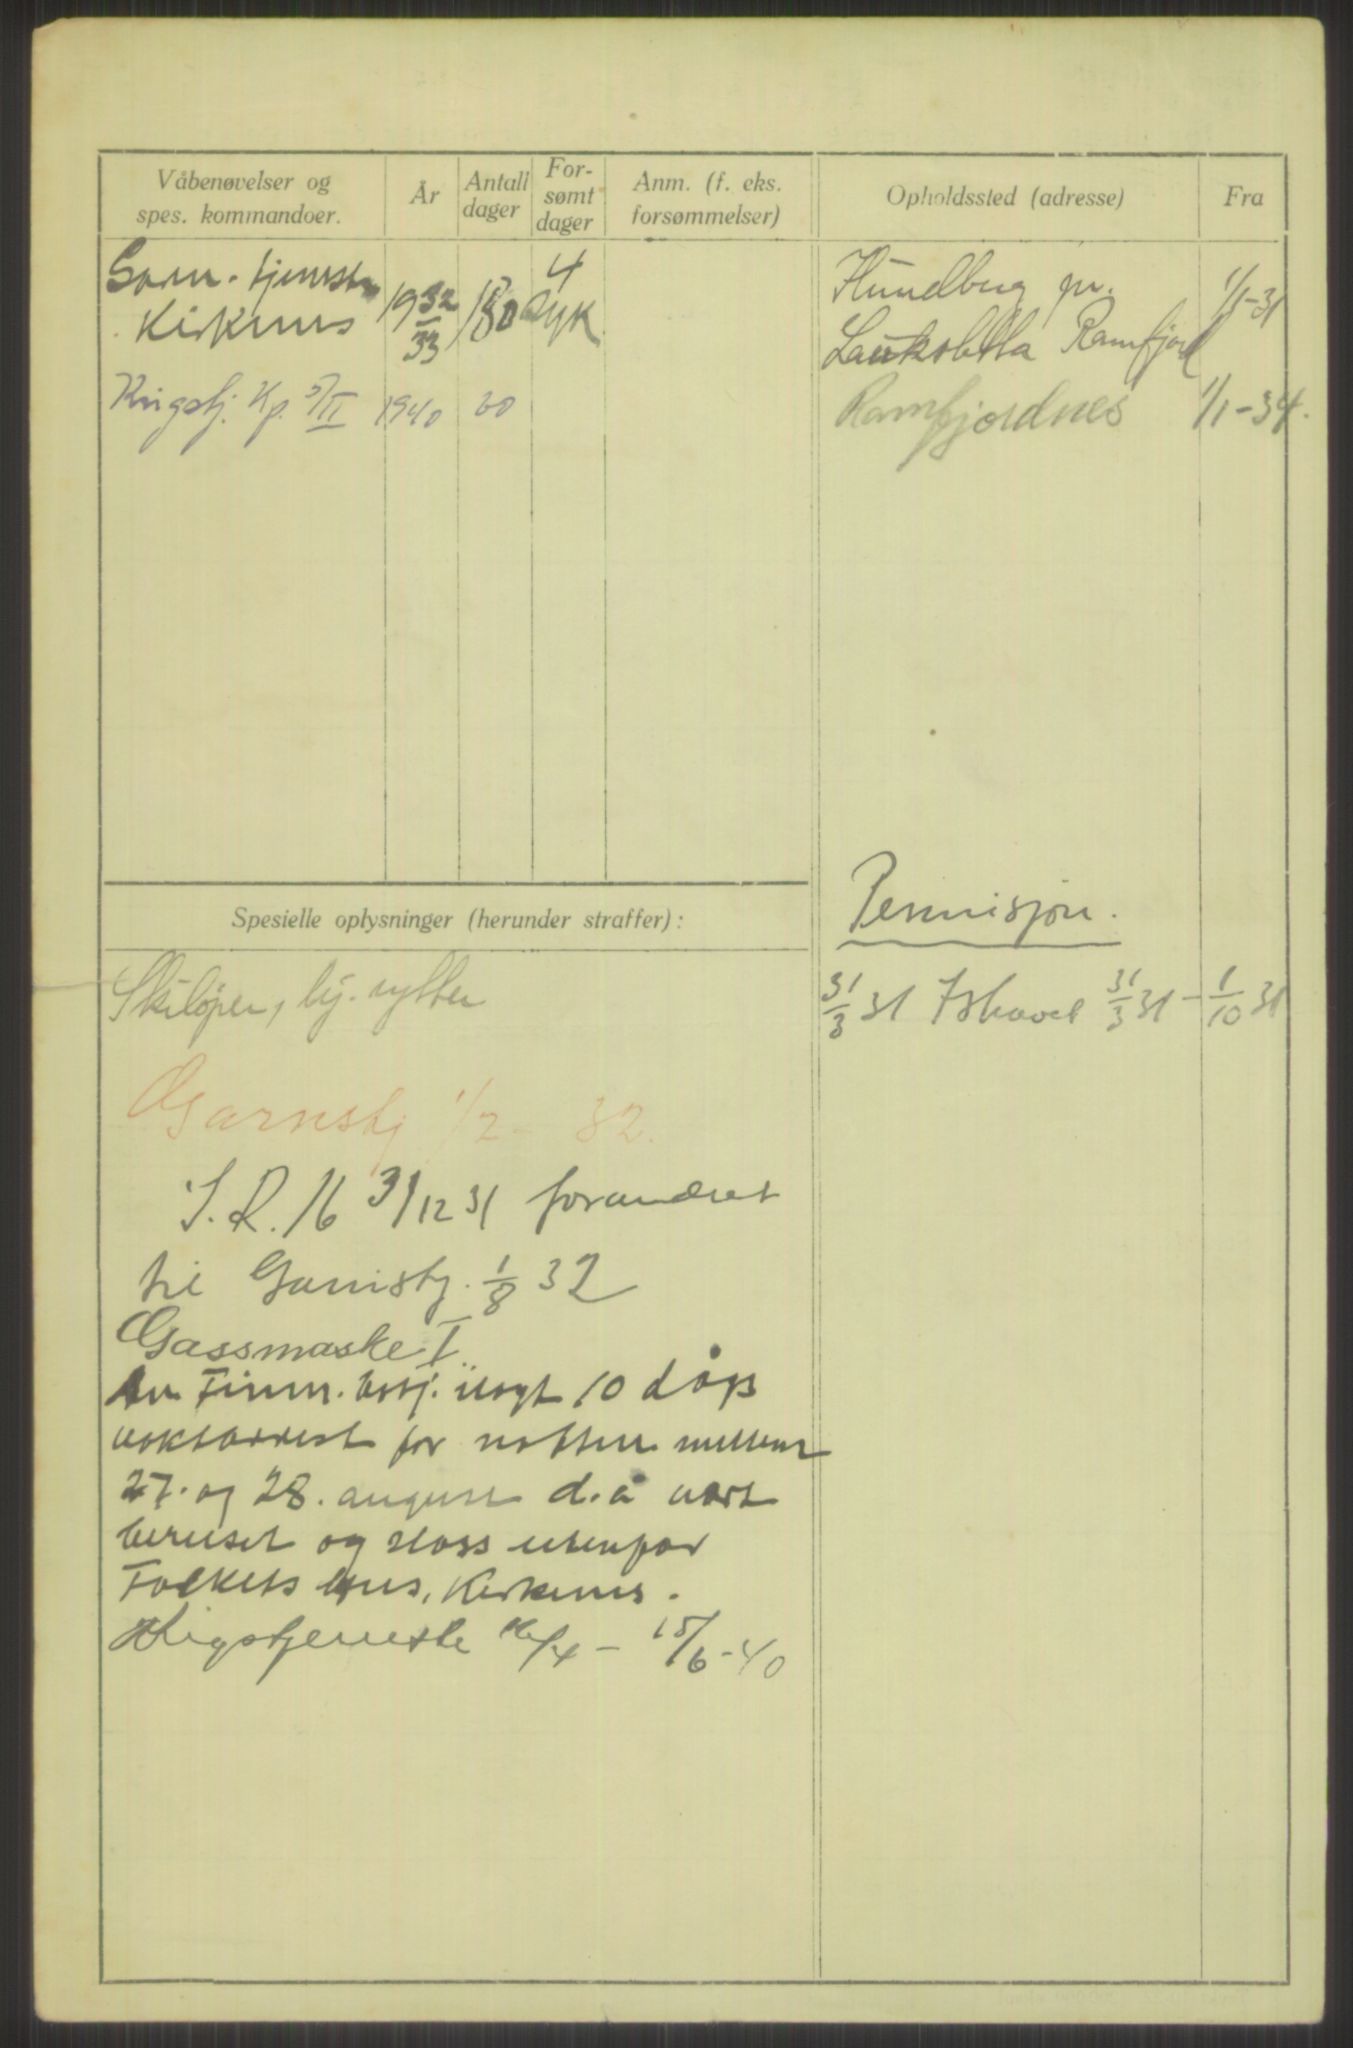 Våbenøvelser og
spes. kommandoer.
År
Antall
dager
For-
sømt
dager
Anm. (f. eks.
forsømmelser)
Opholdssted (adresse)
Fra
Garn. tjeneste
Kirkenes
19 32/33
180
4
syk
Krigstj. Kp. 5/II 1940 20
Hundberg pr.
1/1-31
Laukslitta Ramfjord
Ramfjordnes 1/1-34.
Spesielle oplysninger (herunder straffer):
Skiløper, bj. rytter
Garnstj 1/2 - 32.
I.R. 16 31/12 31 forandret
til Garnistj. 1/8 32
Gassmaske I
Av Finnm. btlj. ilagt 10 døgs
vaktarrest for natten mellem
27. og 28. august d.å vært
beruset og sloss utenfor
Folkets Hus, Kirkenes.
Krigstjeneste /4 - 15/6-40
Permisjon.
31/3 31 Ishavet 31/3 31 - 1/10 31